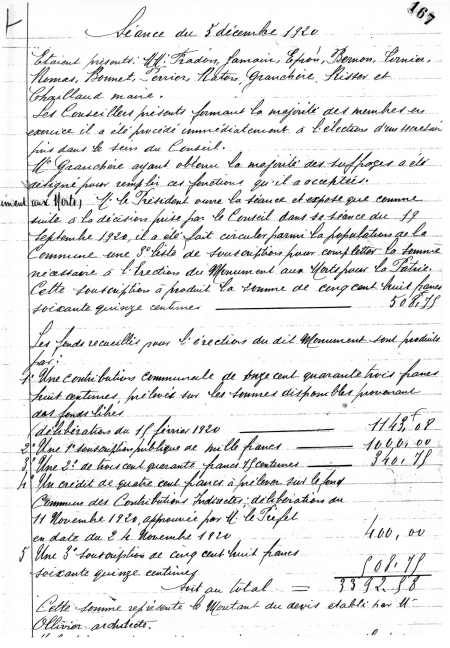 167
Séance du 5 décembre 1920
Etaient présents: MM. Fradon, Jamain, Epron, Bernon,
Bonnet, Perrier, Raton, Granchère, et
Chaillaud maire.
Les Conseillers présents formant la majorité des membres en
exercice il a été procédé immédiatement à l'élection d'un secrétaire
pris dans le sein du Conseil.
Mr Granchère ayant obtenu la majorité des suffrages a été
désigné pour remplir ces fonctions qu'il a acceptées.
ument aux Morts, M. le Président ouvre la séance et expose que comme
suite à la décision prise par le Conseil dans sa séance du 19
Septembre 1920, il a été fait circuler parmi la population de la
Commune une 3e liste de souscription pour completter la somme
nécessaire à l'érection du Monument aux Morts pour la Patrie.
Cette souscription à produit la somme de cinq cent huit francs
soixante quinze centimes 508,75
Les fonds recueillis pour l'érection du dit Monument sont produits
par:
1° Une contribution communale de onze cent quarante trois francs
huit centimes, prélevés sur les sommes disponibles provenant
des fonds libres
(délibération du 15 février 1920 1143,08
2° Une 1e souscription publique de mille francs 1000,00
3° Une 2e de trois cent quarante francs 75 centimes 340,75
4° Un crédit de quatre cent francs à prélever sur le fond
Commun des Contributions Indirectes; délibération du
11 Novembre 1920, approuvée par M. le Préfet
en date du 24 Novembre 1920 400,00
5 Une 3e souscription de cinq cent huit francs
soixante quinze centimes 508,75
soit au total = 3392,58
Cette somme représente le Montant du devis établi par Mr
Ollivier architecte.